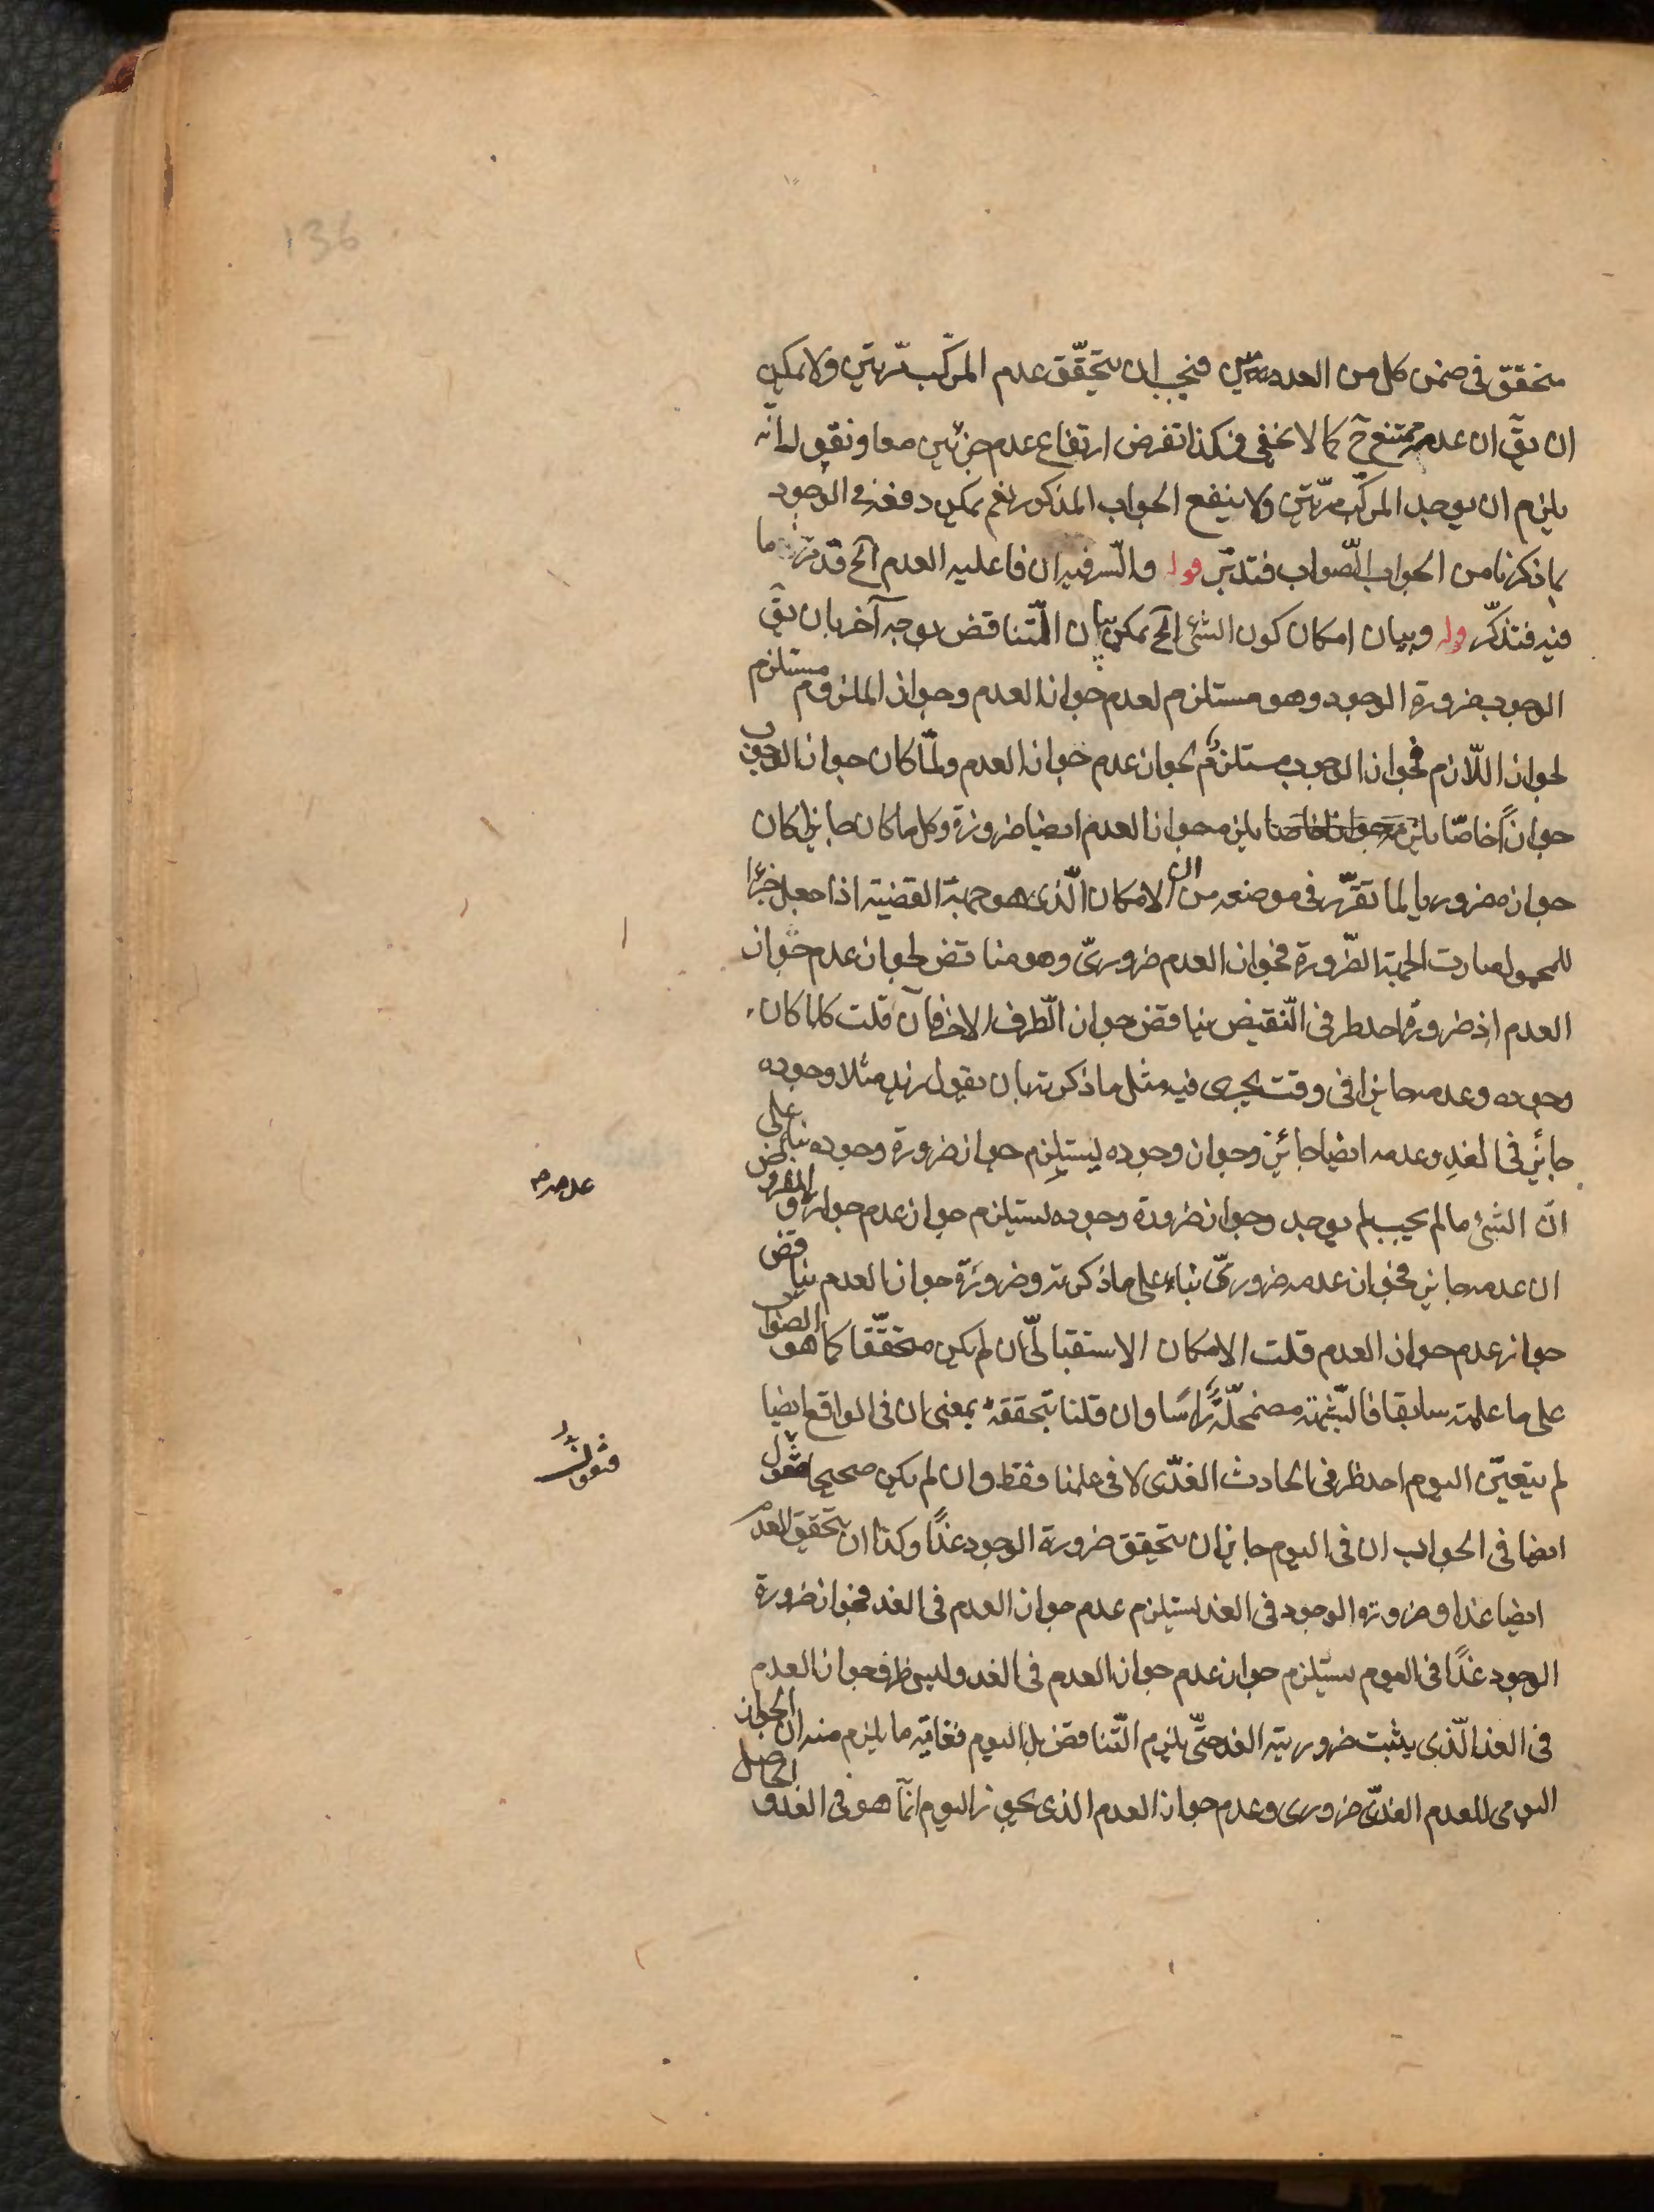 136
متحقق فى ضمن كل من العدمين فيجب ان يتحقّق عدم المركّب مرّتين ولا يمكن
ان يقّ ان عدمه ممتنع حّ كما لا يخفى فهكذا نفرض ارتفاع عدم جزئين معا ونقول انّه
يلزم ان يوجد المركّب مرّتين ولا ينفع الجواب المذكور نعم يمكن دفعه فى الوجود
بما ذكرنا من الجواب الصّواب فتدبّر قوله والسّر فيه ان فاعليه العدم آلخ قد مرّ ما
فيه فتذكّر قوله وبيان امكان كون الشئ آلخ يمكن بيان التّناقض بوجه آخر بان يقّ
الوجوب ضرورة الوجود وهو مستلزم لعدم جواز العدم وجواز الملزوم مستلزم
لجواز اللّازم فجواز الوجوب مستلزم لجواز عدم جواز العدم ولمّا كان جواز الوجوب
جوازاً خاصّا يلزم جوازا خاصا يلزم جواز العدم ايضا ضرورة وكل ما كان جايزا كان
جوازه ضروريا لما تقرّر فى موضعه من ان الامكان الّذى هو جهة القضية اذا جعل جزءا
للمحمول صارت الجهة الضّرورة فجواز العدم ضرورىّ وهو مناقض لجواز عدم جواز
العدم اذ ضرورة احد طرفى النّقيض يناقض جواز الطّرف الاخر فان قلت كلما كان
وجوده وعدمه جايزا فى وقت يجرى فيه مثل ما ذكرته بان يقول زيد مثلا وجوده
جائز فى الغدِ وعدمه ايضا جائز وجواز وجوده يستلزم جواز ضرورة وجوده بناء على
انّ الشئ ما لم يجب لم يوجد وجواز ضرورة وجوده يستلزم جواز عدم جواز والمفروض
عدمه صح
ان عدمه جايز فجواز عدمه ضرورىّ بناء على ما ذكرته وضرورة جواز العدم يناقض
جواز عدم جواز العدم قلت الامكان الاستقبالىّ ان لم يكن متحقّقا كما هو الصواب
على ما علمته سابقا فالشّبهة مضمحلّة رأسًا وان قلنا بتحققه بمعنى ان فى الواقع ايضا
لم يتعيّن اليوم احد طرفى الحادث الغدّى لا فى علمنا فقط وان لم يكن صحيحا فنقول
فنقول
ايضا فى الجواب ان فى اليوم جايز ان يتحقق ضرورة الوجود غدًا وكذا ان يتحقق العدم
ايضا غدا وضرورة الوجود فى الغد يستلزم عدم جواز العدم فى الغد فجواز ضرورة
الوجود غدًا فى اليوم يستلزم جواز عدم جواز العدم فى الغد وليس ظرف جواز العدم
فى الغد الّذى يثبت ضروريته الغد حتّى يلزم التّناقض بل اليوم فغاية ما يلزم منه ان الجواز
اليومى للعدم الغدّى ضرورى وعدم جواز العدم الذى يجوز اليوم انّما هو فى الغد و الحاصل